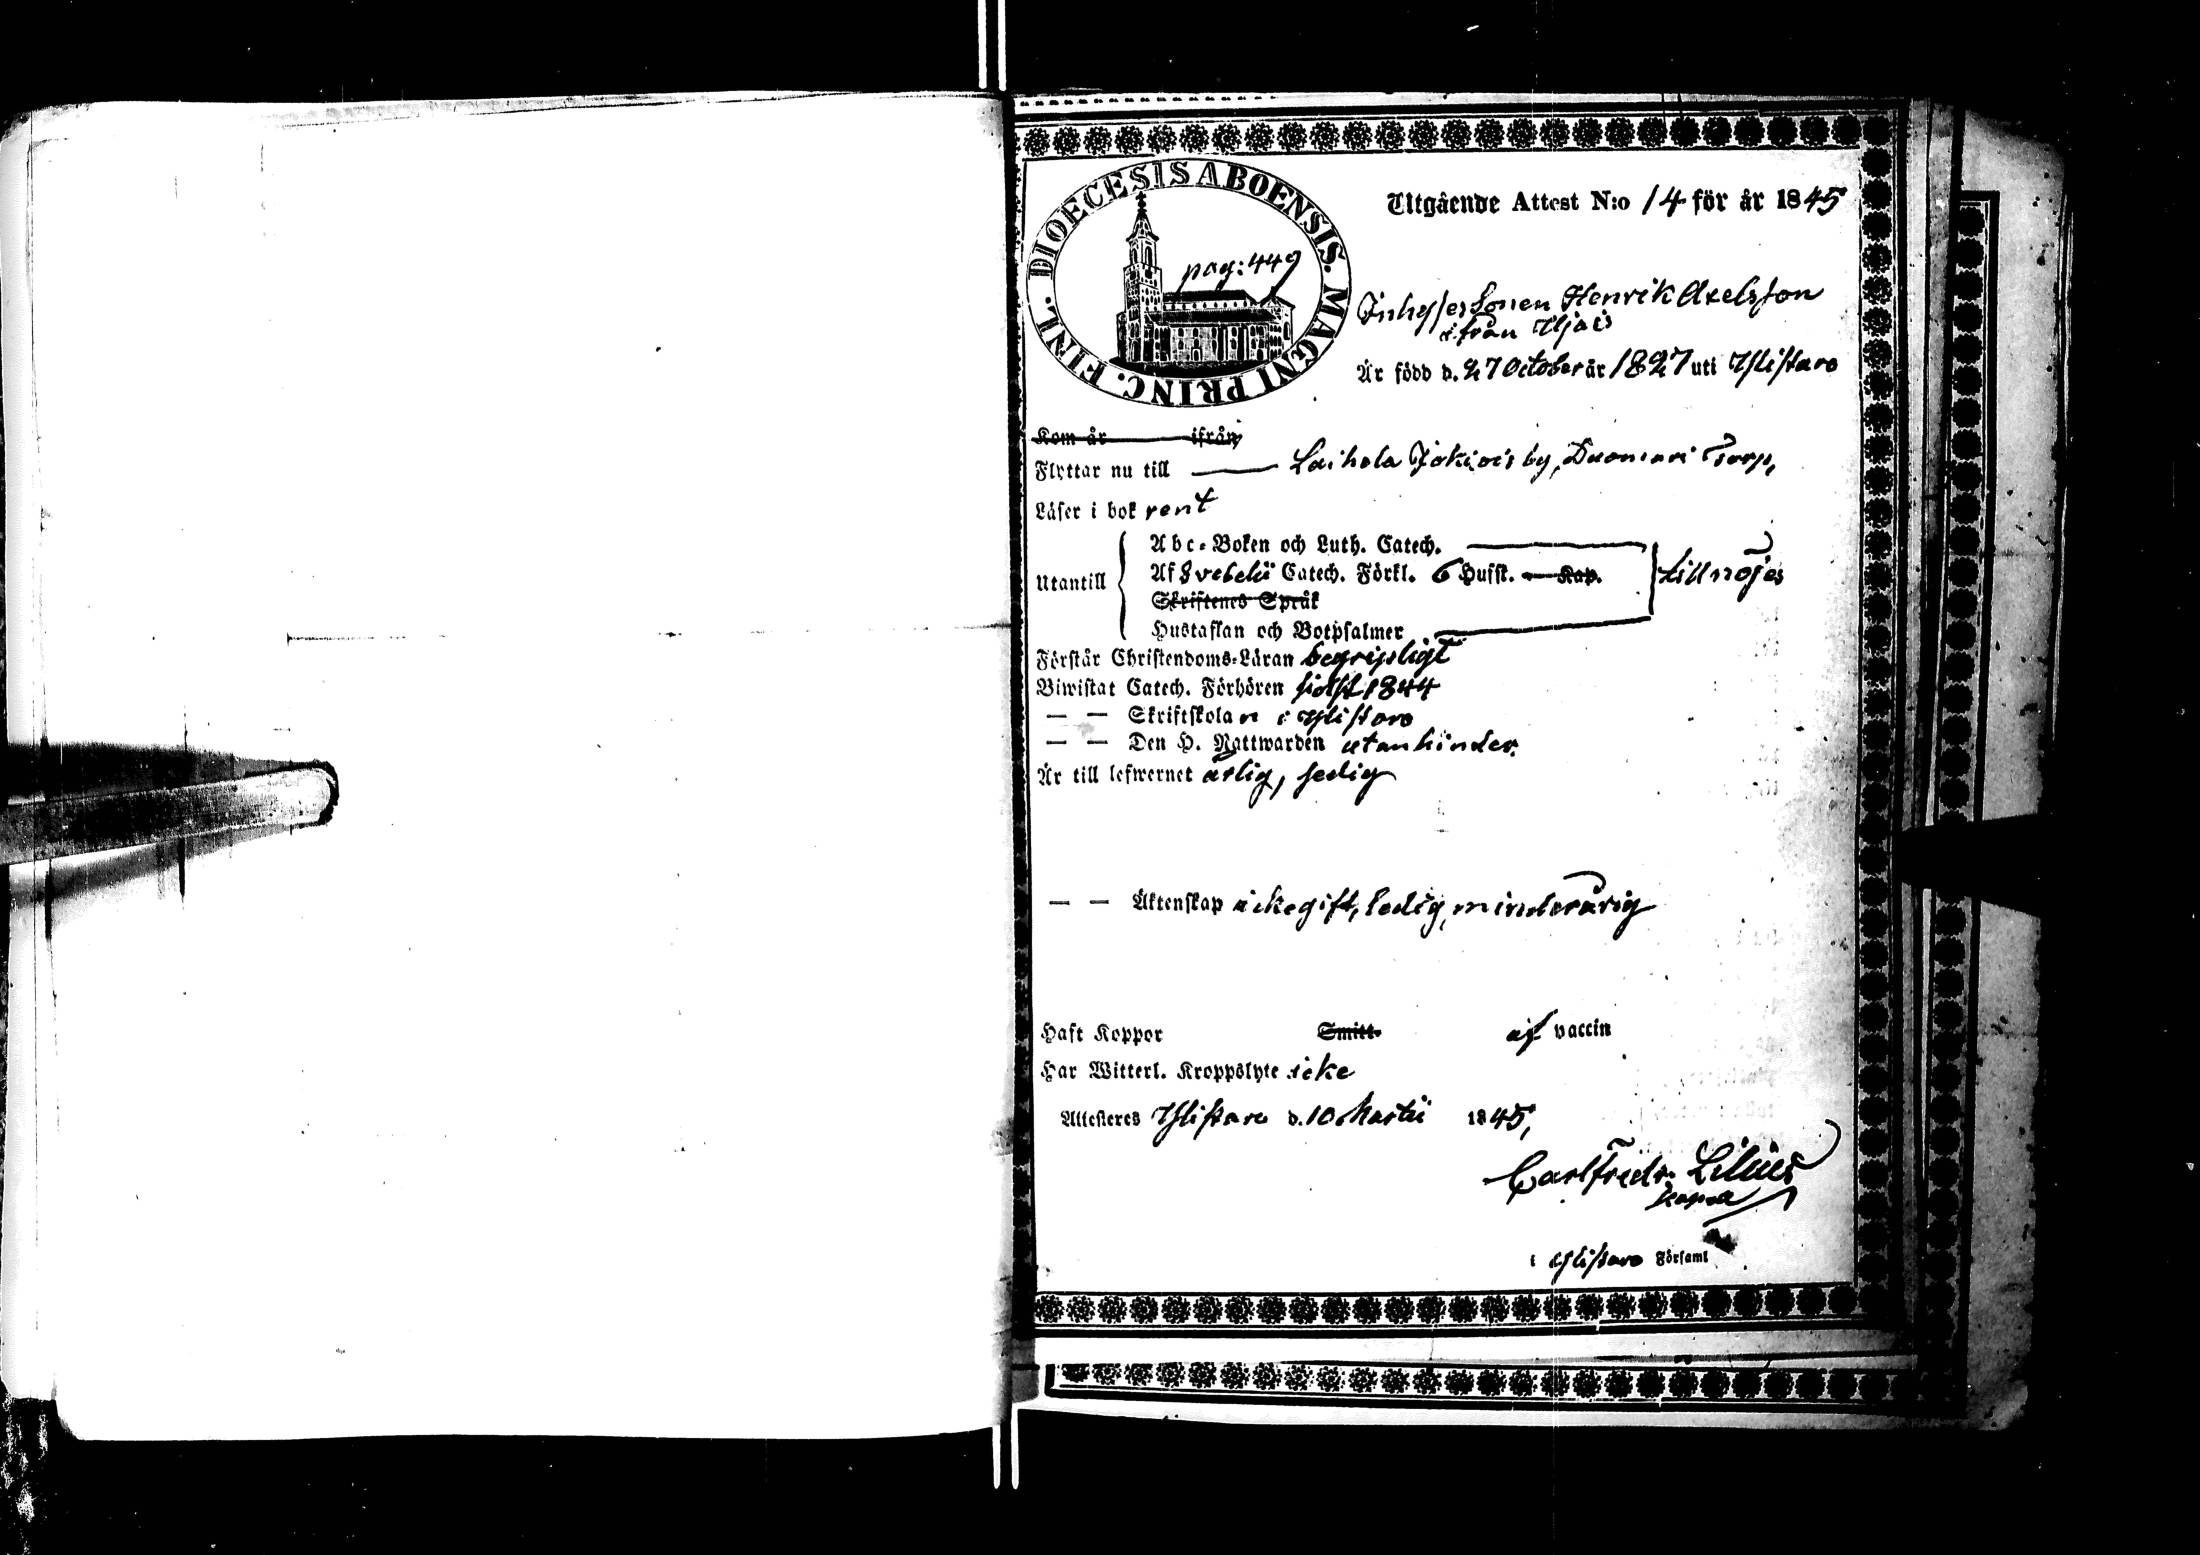 DIOECESIS ABOENSIS. MAGNI PRINC. FINL.
pag: 449
Utgående Attest N:o 14 för år 1845
Inhyses Sonen Henrik Axelsson
ifrån Ujais
Är född d. 27 October år 1827 uti Ylistaro
Kom år ifrån
Flyttar nu till Laihela Jokiois by, Duomari Torp,
Läser i bok rent
Utantill
Abc-Boken och Luth. Catech.
Af Svebelii Catech. Förkl. 6 Hufst. Kap.
Skriftenes Språk
Hustaflan och Botpsalmer
tillnöjes
Förstår Christendoms-Läran begripligt
Biwistat Catech. Förhören sidst 1844
— — Skriftskolan i Ylistaro
— — Den H. Nattwarden utan hinder.
Är till lefwernet ärlig, sedig
— — Äktenskap icke gift, ledig, minderårig
Haft Koppor Smitt- af vaccin
Har Witterl. Kroppslyte icke
Attesteres Ylistaro d. 10 Martii 1845,
Carl Fredr. Lilius
i Ylistaro Församl